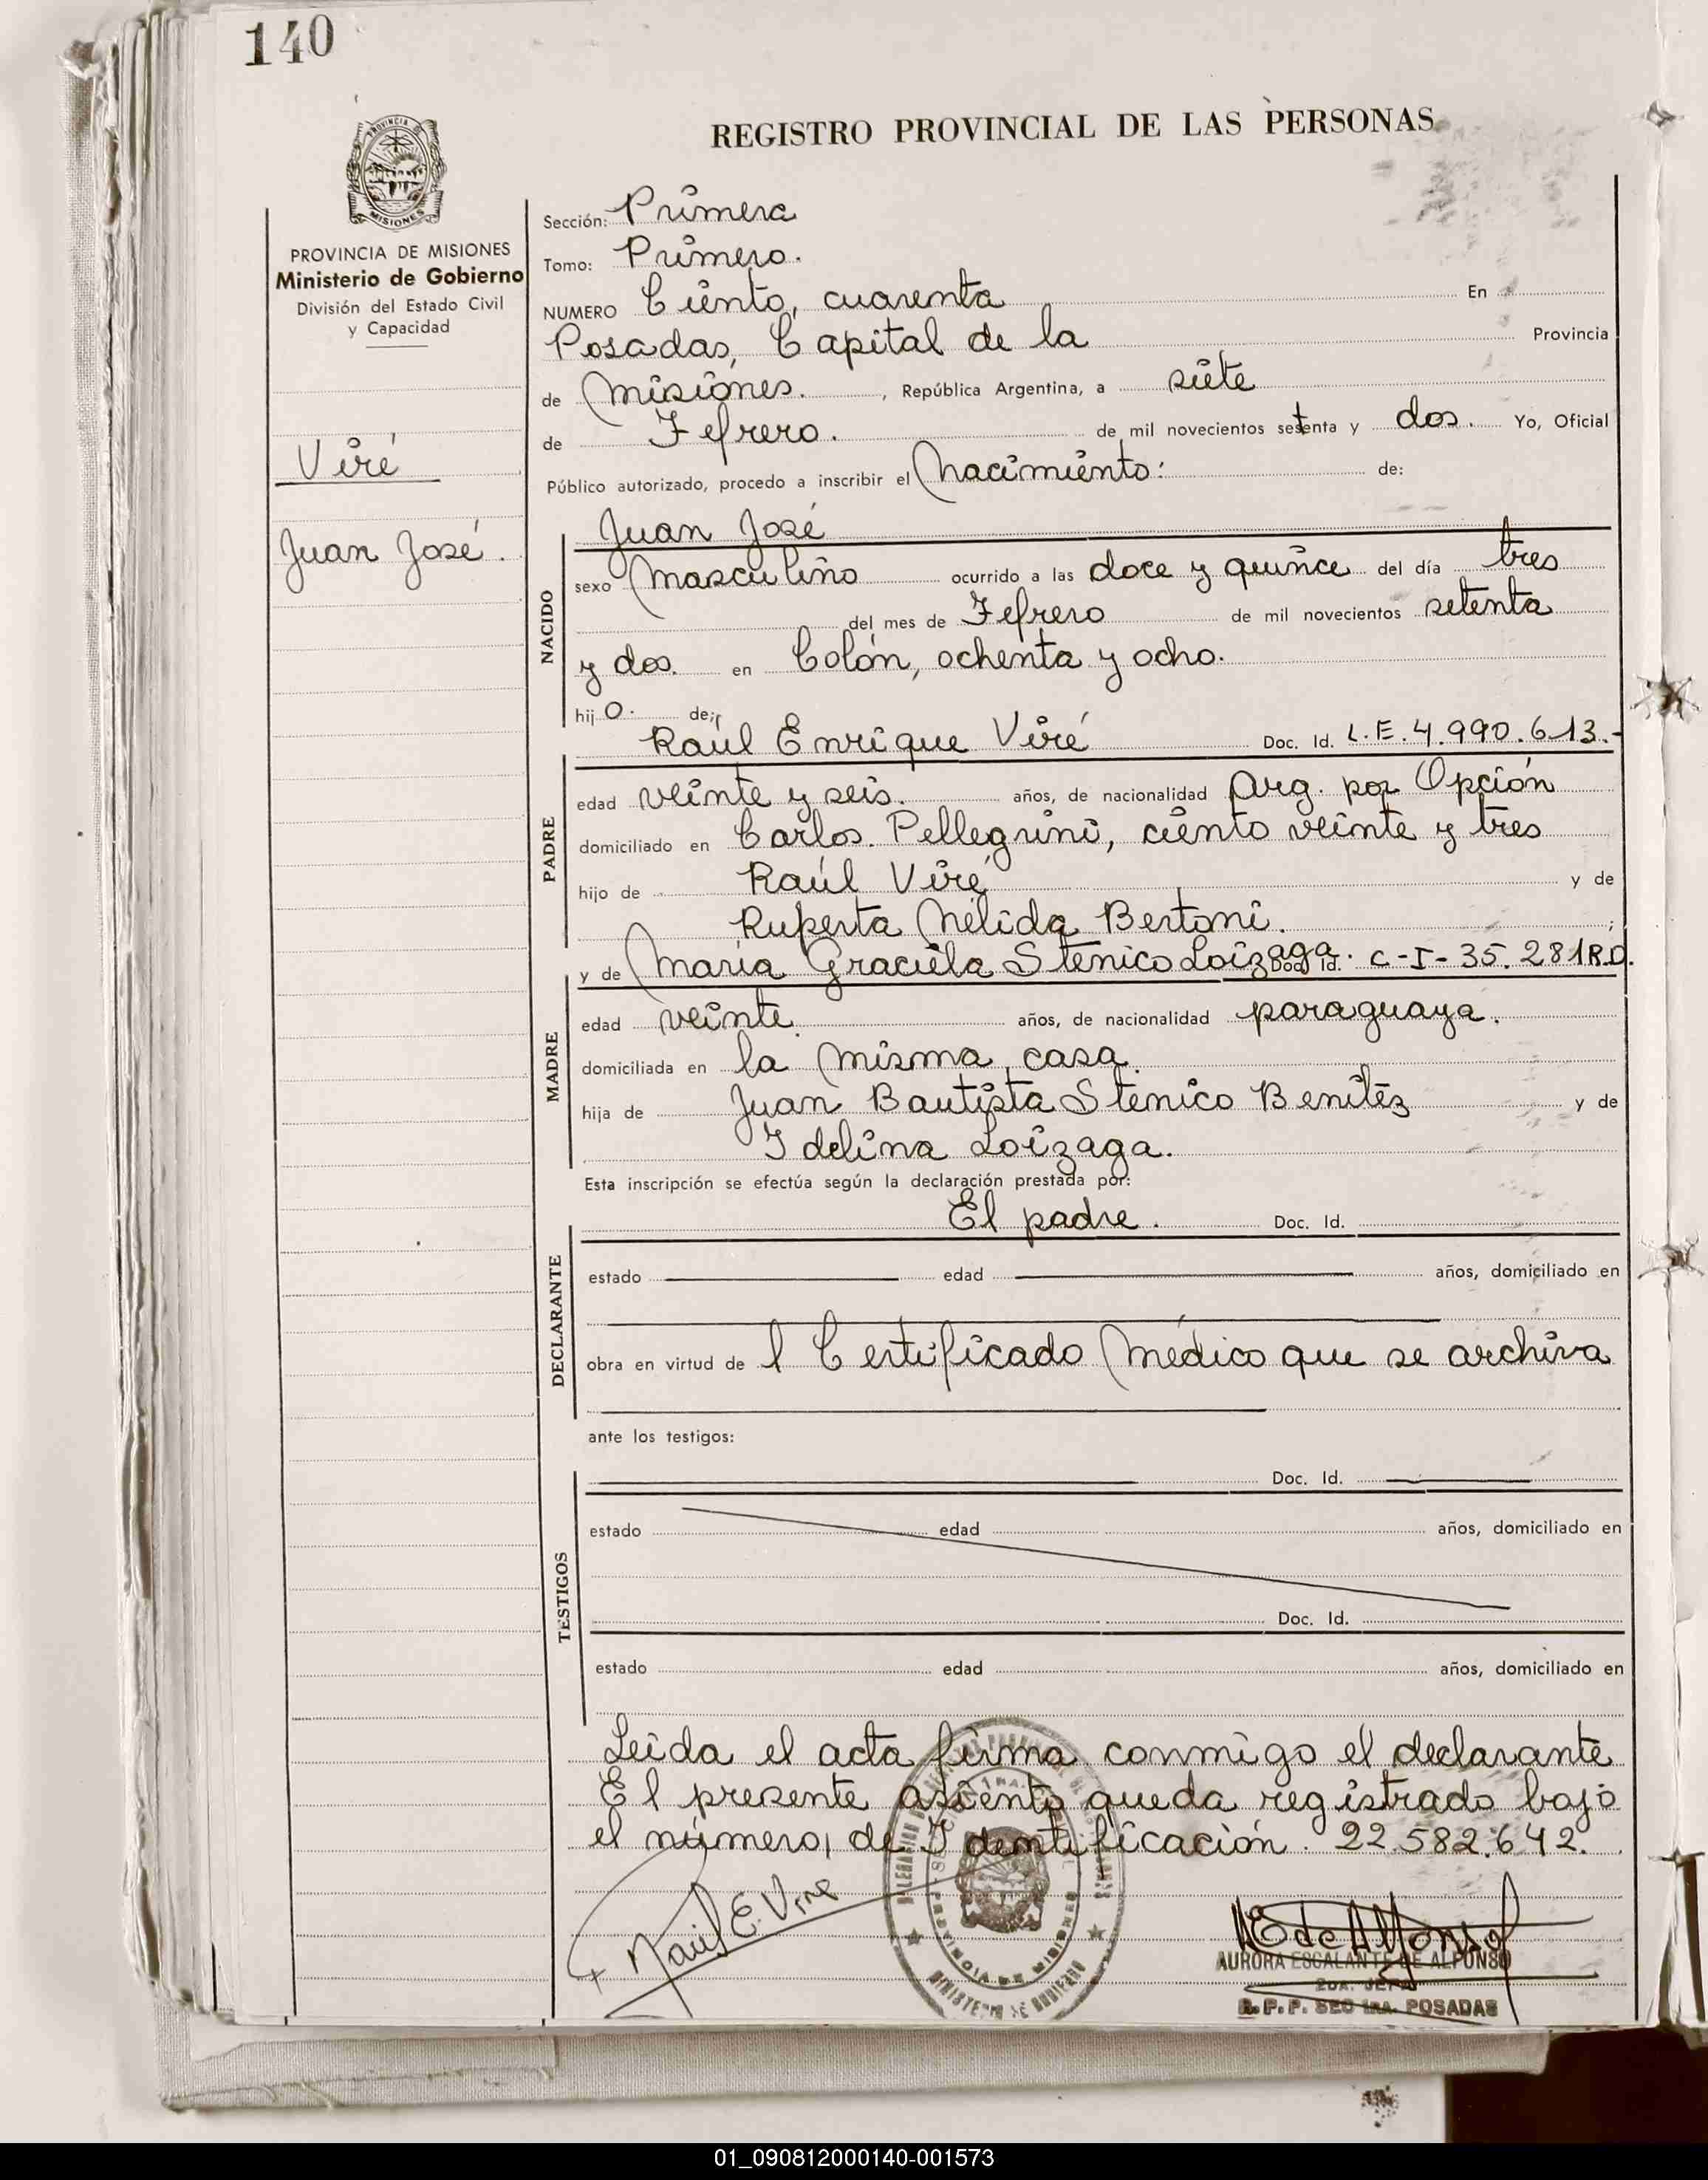 140
REGISTRO PROVINCIAL DE LAS PERSONAS
PROVINCIA DE MISIONES
Ministerio de Gobierno
División del Estado Civil
y Capacidad
Viré
Juan José.
Sección: Primera
Tomo: Primero.
NUMERO Ciento, cuarenta En
Posadas, Capital de la Provincia
de Misiones. , República Argentina, a siete
de Febrero. de mil novecientos setenta y dos. Yo, Oficial
Público autorizado, procedo a inscribir el Nacimiento: de:
NACIDO
Juan José
sexo Masculino ocurrido a las doce y quince del día tres
del mes de Febrero de mil novecientos setenta
y dos. en Colón, ochenta y ocho.
hijo. de:
Raúl Enrique Viré Doc. Id. L.E. 4.990.613.-
PADRE
edad veinte y seis. años, de nacionalidad Arg. por Opción
domiciliado en Carlos Pellegrini, ciento veinte y tres
hijo de Raúl Viré y de
Ruperta Nélida Bertoni. ;
y de María Graciela Stenico Loizaga. Doc. Id. C-I-35.281R.P.
MADRE
edad veinte. años, de nacionalidad paraguaya.
domiciliada en la misma casa.
hija de Juan Bautista Stenico Benítez y de
Idelina Loizaga.
Esta inscripción se efectúa según la declaración prestada por:
El padre. Doc. Id.
DECLARANTE
estado edad años, domiciliado en
obra en virtud de l Certificado Médico que se archiva
ante los testigos:
Doc. Id.
TESTIGOS
estado edad años, domiciliado en
Doc. Id.
estado edad años, domiciliado en
Leida el acta firma conmigo el declarante
El presente asiento queda registrado bajo
el número, de Identificación. 22.582.642.
Raúl E. Viré
PROVINCIA DE MISIONES
AEdeAlfonso
AURORA ESCALANTE DE ALFONSO
2DA. JEFA
R. P. P. SEC 1RA. POSADAS
01_090812000140-001573